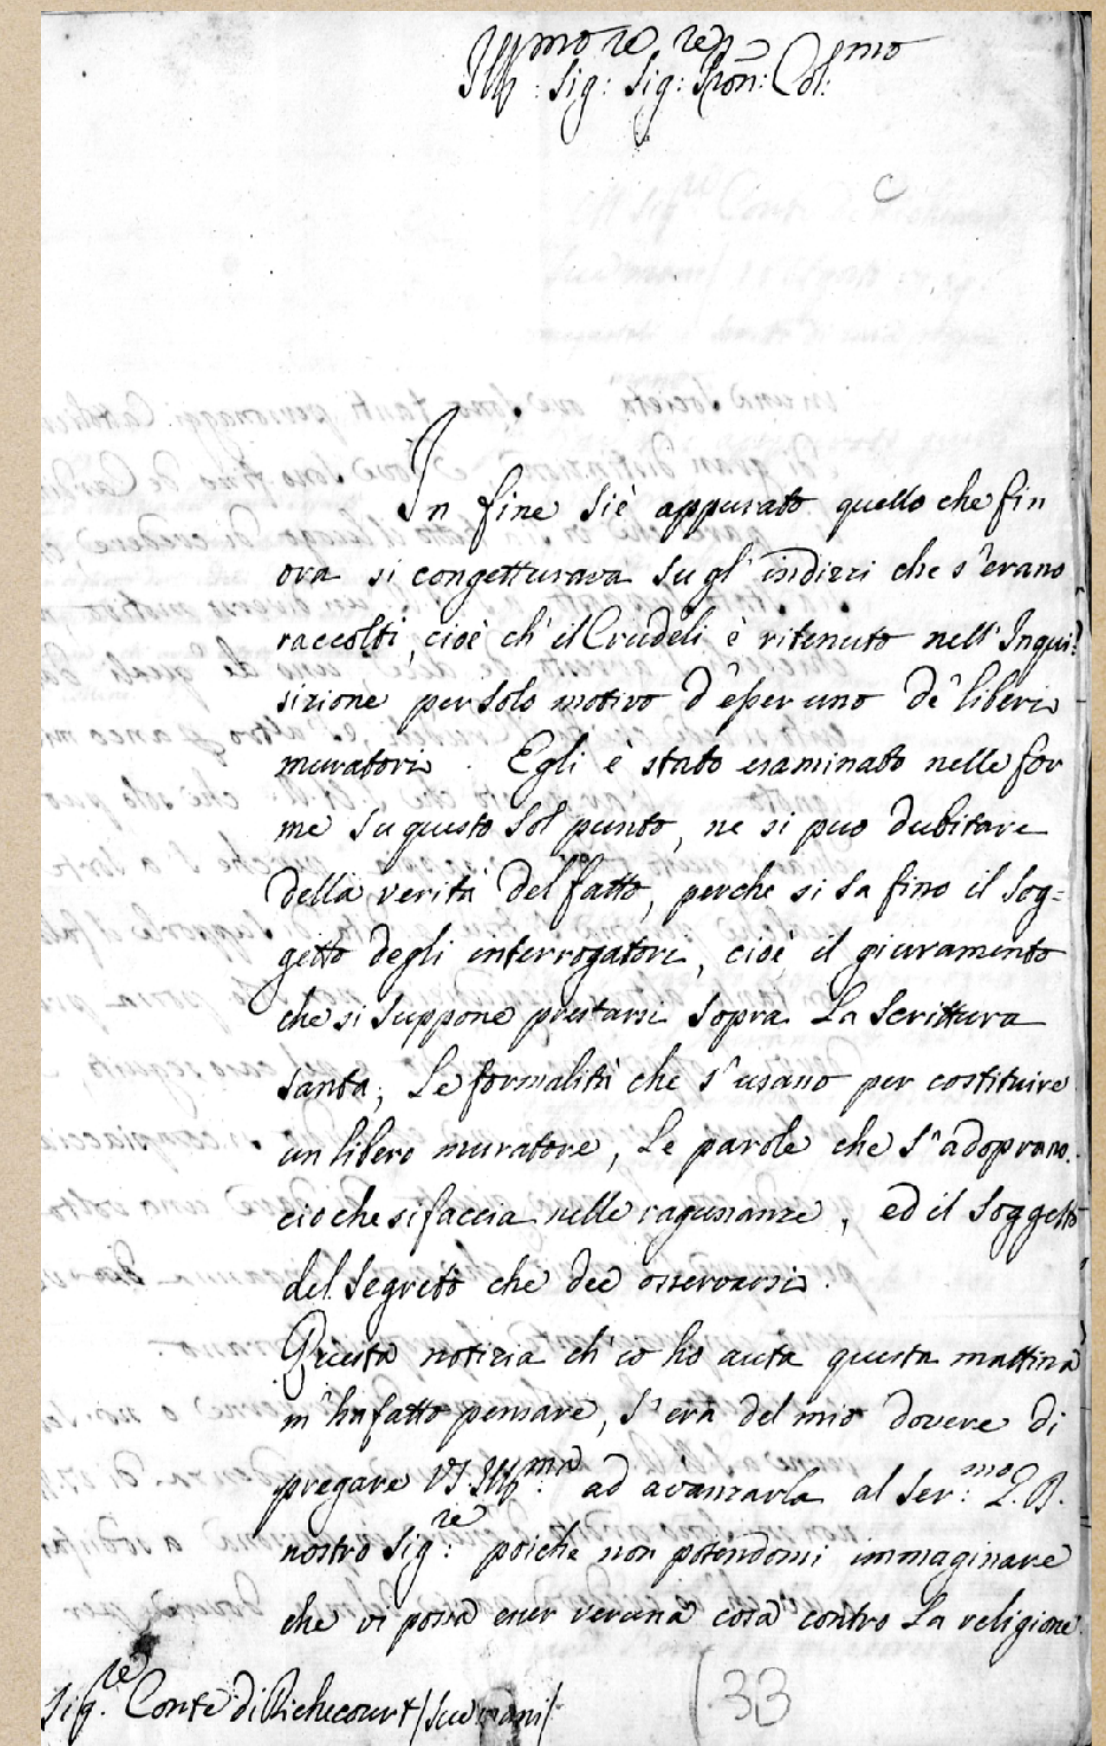 Ill:mo Sig:re Sig:re Pron: Col:mo
In fine si è appurato quello che fin
ora si congetturava su gl'indizzi che s'erano
raccolti, cioè ch'il Crudeli è ritenuto nell'Inqui=
sizione per solo motivo d'esser uno de' liberi
muratori. Egli è stato esaminato nelle for
me su questo sol punto, ne si puo dubitare
della verità del fatto, perche si sa fino il sog=
getto degli interrogatori, cioè il giuramento
che si suppone prestarsi sopra la scrittura
santa; le formalità che s'usano per costituire
un libero muratore, le parole che s'adoprano.
cio che si faccia nelle ragunanze, ed il soggetto
del segreto che deè osservarsi.
Questa notizia ch'io ho auta questa mattina
m'ha fatto pensare, s'era del mio dovere di
pregare VS. Ill:ma ad avanzarla al Ser:mo
nostro Sig:re poiche non potendomi immaginare
che vi possa esser veruna cosa contro la religione
Sig.re Conte di Richecourt /sue mani/
33